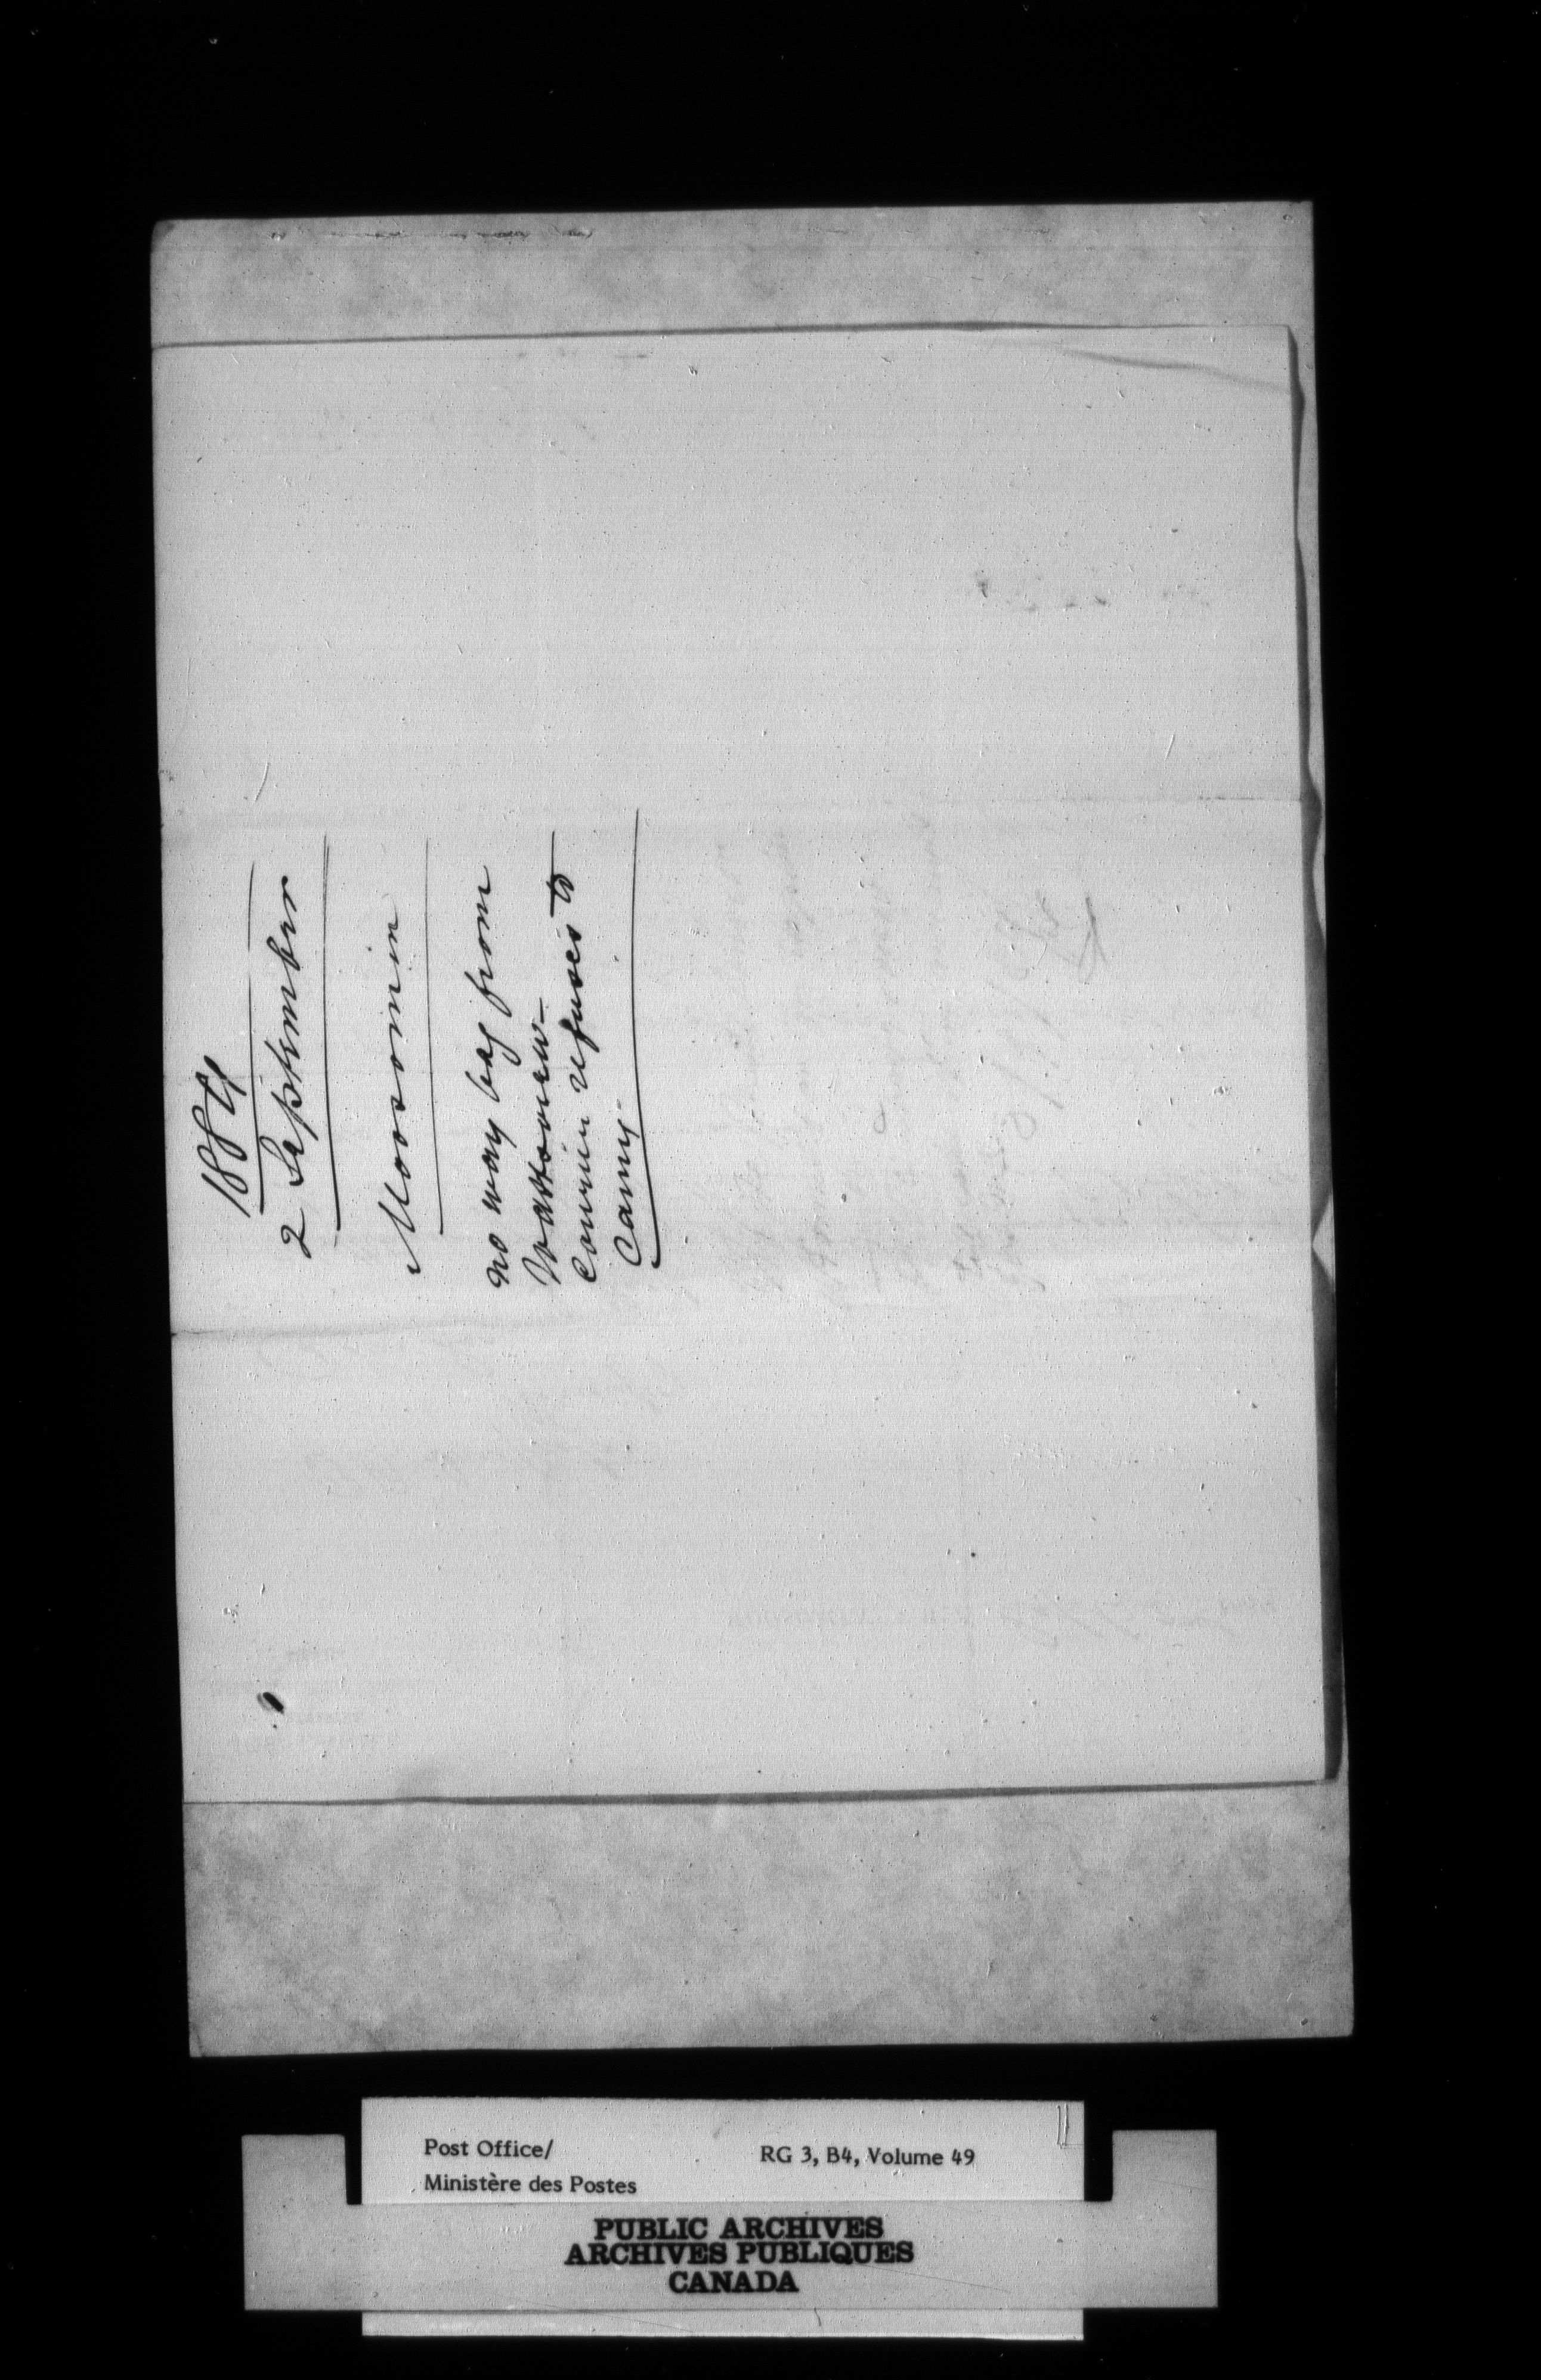 1884
2 September
Moosomin
no way bag from
Wattsview-
Courier refuses to
Carry-
Post Office/
Ministère des Postes
RG 3, B4, Volume 49
PUBLIC ARCHIVES
ARCHIVES PUBLIQUES
CANADA